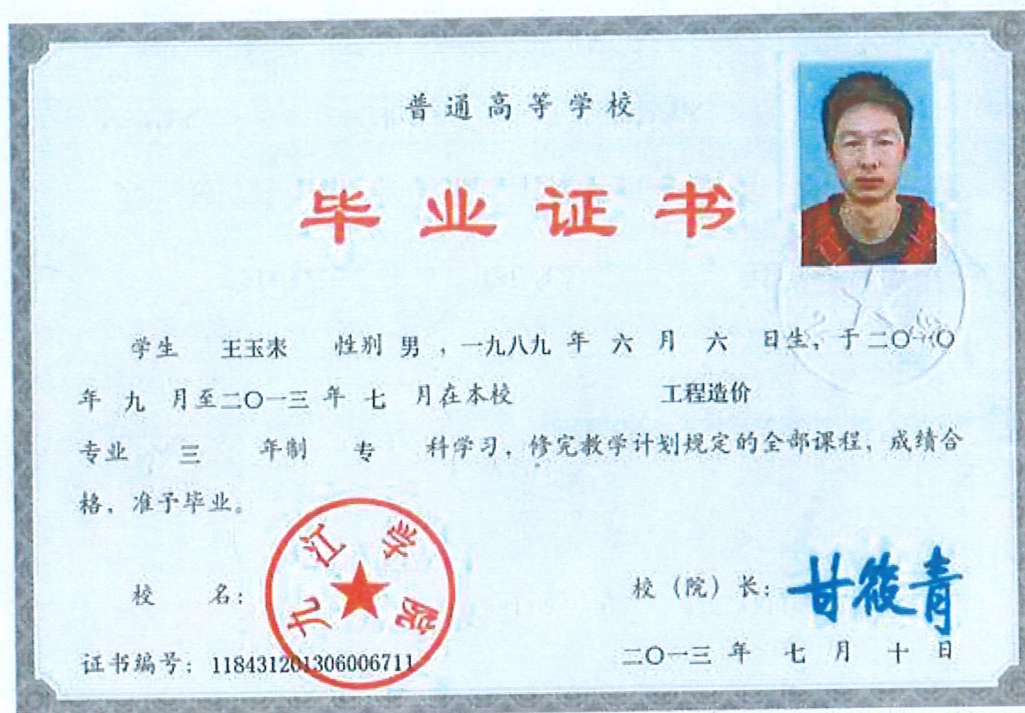 普通高等学校
毕业证书
学生 王玉来 性别 男 ,一九八九 年 六 月 六 日生, 于二〇一〇
年 九 月至二〇一三年 七 月在本校 工程造价
专业 三 年制 专 科学习,修完教学计划规定的全部课程,成绩合
格,准予毕业。
九江学院
校 名: 校(院)长: 甘筱青
证书编号: 118431201306006711 二〇一三 年 七 月 十 日